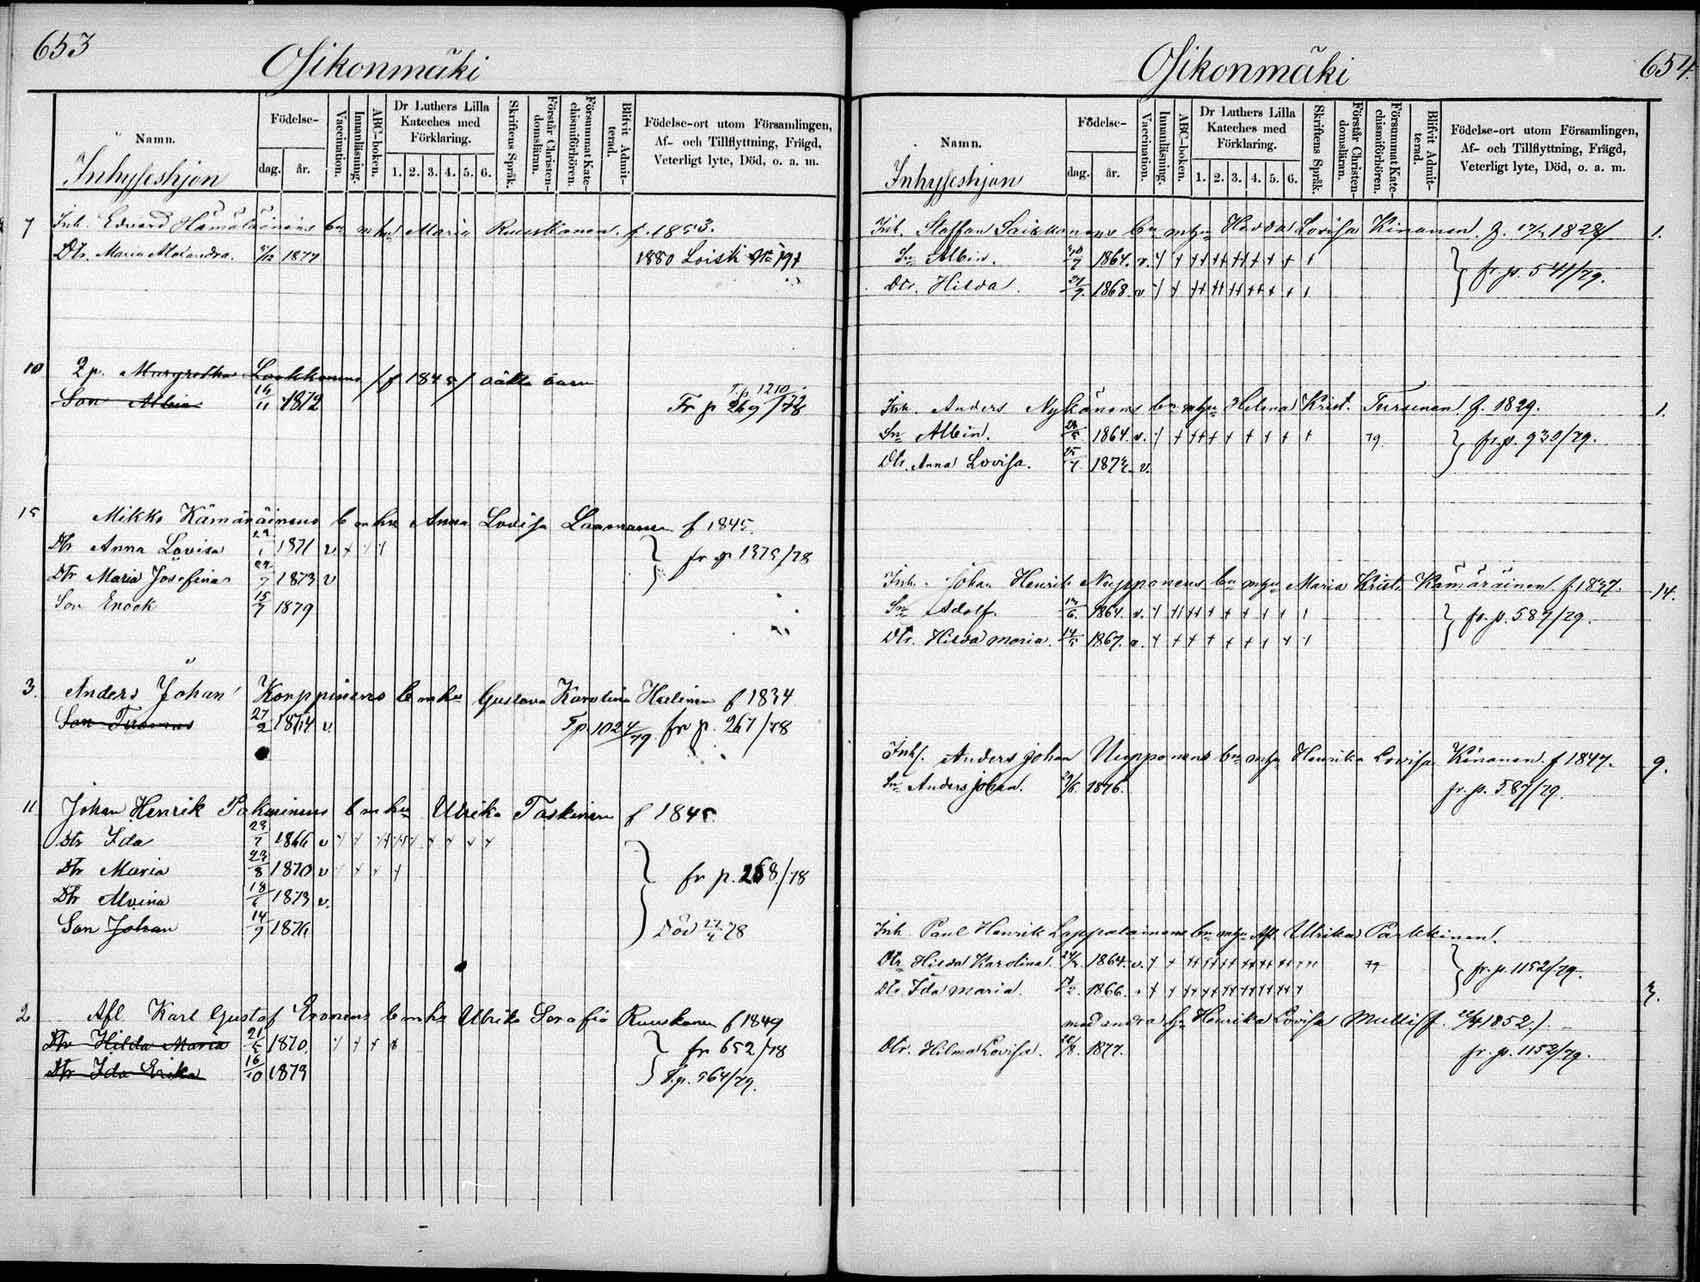 653
Oikonmäki
Namn.
Födelse-
dag. år.
Vaccination.
Innanläsning.
ABC-boken.
Dr Luthers Lilla
Kateches med
Förklaring.
1. 2. 3. 4. 5. 6.
Skriftens Språk.
Förstår Christen-
domsläran.
Försummat Kate-
chismiförhören.
Blifvit Admit-
terad.
Födelse-ort utom Församlingen,
Af- och Tillflyttning, Frägd,
Veterligt lyte, Död, o. a. m.
Inhyseshjon
7 Inh. Edvard Hämäläinens bn m hu Maria Ruuskanen f. 1853.
Dtr. Maria Alexandra. 1877 1880
10 2p. Margretha Laukkanens /f 1848/ oäkta barn
Son Albin 16/11 1872 Fr p 269/78
15 Mikko Kämäräinens b m hu Anna Lovisa Laamanen f 1845
Dtr Anna Lovisa 1871 v fr p 1375/78
Dtr Maria Josefina 1873 v
Son Enock 15/7 1879
3. Anders Johan Korppinens b m hu Gustava Karolina Heelinen f 1834
Son Tuomas 27/2 1874 v. Tp 1024/79. fr p. 267/78
11 Johan Henrik Pakarinens b m hu Ulrika Taskinen f 1845
Dtr Ida 23/7 1866 v
Dtr Maria 23/8 1870 v fr p. 268/78
Dtr Alvina 1873 v.
Son Johan 14/7 1876 Död 78
2 Afl Karl Gustaf Eronens b m hu Ulrika Serafia Ruuskanen f 1849
Dtr Hilda Maria 21/5 1870. fr 652/78
Dtr Ida Erika 16/10 1873 T.p. 564/79.
654
Oikonmäki
Namn.
Födelse-
dag. år.
Vaccination.
Innanläsning.
ABC-boken.
Dr Luthers Lilla
Kateches med
Förklaring.
1. 2. 3. 4. 5. 6.
Skriftens Språk.
Förstår Christen-
domsläran.
Försummat Kate-
chismiförhören.
Blifvit Admit-
terad.
Födelse-ort utom Församlingen,
Af- och Tillflyttning, Frägd,
Veterligt lyte, Död, o. a. m.
Inhyseshjon
Inh. Staffan bn m hu Hedda Lovisa Kinanen 1.
Sn Albin. 1864. v. fr. p. 541/79.
Dtr. Hilda. 1868. v
Inh. Anders Nykänens bn m hu Helena Krist. Tursunen f. 1829. 1.
Sn Albin. 1864. v. 79 fr. p. 930/79.
Dtr. Anna Lovisa. v.
Inh. Johan Henrik Nupponens bn m hu Maria Krist. Kämäräinen f. 1837. 14.
Sn Adolf. 1864. v. fr. p. 587/79.
Dtr. Hilda Maria. 1867. v.
Inh. Anders Johan Nupponens bn m hu Henrika Lovisa Kinanen f 1847. 9.
Sn Anders Johan. 1876. fr. p. 587/79.
Inh. Paul Henrik Lappalainens bn m hu Afl. Ulrika Parkkinen.
Dtr Hilda Karolina. 1864. v. 79 fr. p. 1152/79.
Dtr. Ida Maria. 1866. 3.
med andra hu Henrika Lovisa 1852.)
Dtr. Hilma Lovisa. 1877. fr. p. 1152/79.